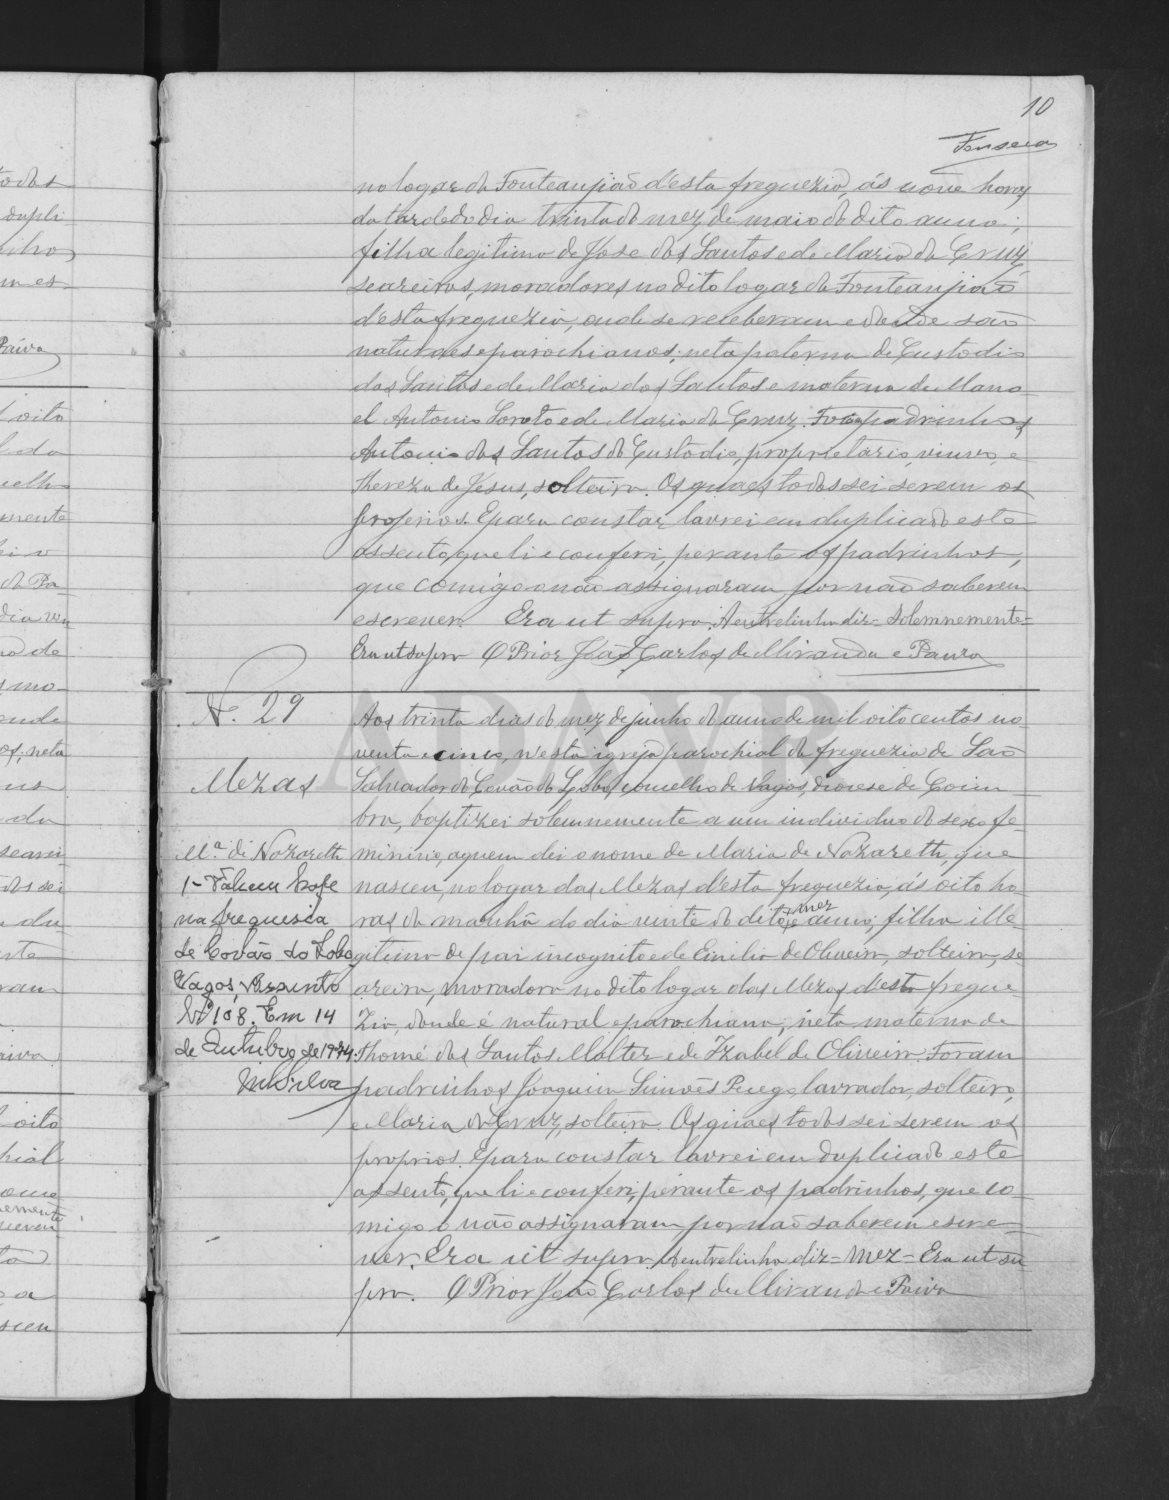 10
Fonseca
no logar da Fonteanjião d'esta freguezia, ás nove horas
da tarde do dia trinta do mez de maio do dito anno;
filha legitima de José dos Santos e de Maria da Cruz,
seareiros, moradores no dito logar da Fonteanjião
d'esta freguezia, onde se receberam e donde são
naturaes e parochianos; neta paterna de Custodio
dos Santos e de Maria dos Santos e materna de Mano-
el Antonio Loroto e de Maria da Cruz. Foram padrinhos
Antonio dos Santos do Custodio, proprietario, viuvo, e
Thereza de Jesus, solteira. Os quaes todos sei serem os
proprios. E para constar lavrei em duplicado este
assento, que li e conferi, perante os padrinhos,
que comigo não assignaram por não saberem
escrever. Era ut supra. A entrelinha diz - solemnemente -
Era ut supra O Prior João Carlos de Miranda e Paiva
N. 29
Mezas
M.ª de Nazareth
1 - Faleceu hoje
na freguesia
de Covão do Lobo
Vagos, Assento
Nº 108. Em 14
de Outubro de 1974.
MSilva
Aos trinta dias do mez de junho do anno de mil oitocentos no-
venta e cinco, n'esta igreja parochial da freguezia de São
Salvador do Covão do Lobo, concelho de Vagos, diocese de Coim-
bra, baptizei solemnemente a um individuo do sexo fe-
minino, a quem dei o nome de Maria de Nazareth, que
nasceu, no logar das Mezas d'esta freguezia, ás oito ho-
ras da manhã do dia vinte do dito mez e anno; filha ille-
gitima de pai incognito e de Emilia de Oliveira, solteira, se-
areira, moradora no dito logar das Mezas d'esta fregue-
zia, donde é natural e parochiana; neta materna de
Thomé dos Santos Malter e de Izabel de Oliveira. Foram
padrinhos Joaquim Simões Pecego, lavrador, solteiro,
e Maria da Cruz, solteira. Os quaes todos sei serem os
proprios. E para constar lavrei em duplicado este
assento, que li e conferi, perante os padrinhos, que co-
migo não assignaram por não saberem escre-
ver. Era ut supra. A entrelinha diz - mez - Era ut su-
pra. O Prior João Carlos de Miranda e Paiva